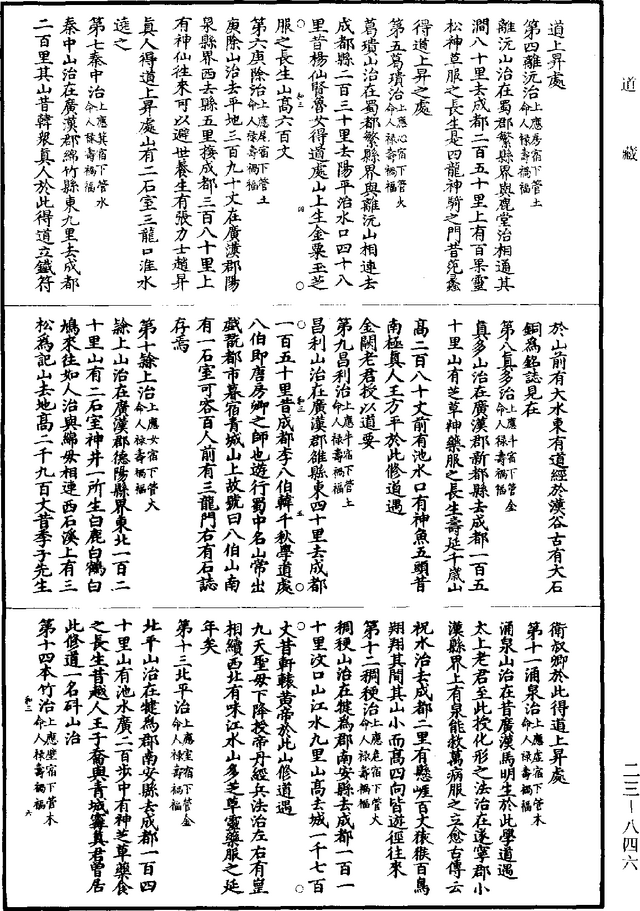 道藏
道上昇處
第四離沅治上應房宿下管土命人祿壽禍福
離沅山治在蜀郡繁縣界與鹿堂治相通其
澗八十里去成都二百五十里上有百果靈
松神草服之長生是四龍神騎之門昔范蠡
得道上昇之處
第五葛璝治上應心宿下管火命人祿壽禍福
葛璝山治在蜀郡繁縣界與離沅山相連去
成都縣二百三十里去陽平治水口四十八
里昔楊仙賢魯女得道處山上生金粟玉芝
服之長生山高六百丈
第六庚除治上應尾宿下管土命人祿壽禍福
庚除山治去平地三百九十丈在廣漢郡陽
泉縣界西去縣五里接成都三百八十里上
有神仙往來可以避世養生有張力士趙昇
眞人得道上昇處山有二石室三龍口淮水
遶之
第七秦中治上應箕宿下管水命人祿壽禍福
秦中山治在廣漢郡綿竹縣東九里去成都
二百里其山昔韓衆眞人於此得道立鐵符
於山前有大水東有道經於漢谷古有大石
銅爲銘誌見在
第八眞多治上應斗宿下管金命人祿壽禍福
眞多山治在廣漢郡新都縣去成都一百五
十里山有芝草神藥服之長生壽延千歲山
高二百八十丈前有池水口有神魚五頭昔
南極眞人王方平於此修道遇
金闕老君授以道要
第九昌利治上應牛宿下管土命人祿壽禍福
昌利山治在廣漢郡雒縣東四十里去成都
一百五十里昔成都李八伯韓千秋學道處
八伯即唐房卿之師也遊行蜀中名山常出
戲翫都市暮宿青城山上故號曰八伯山南
有一石室可容百人前有三龍門右有石誌
存焉
第十餘上治上應女宿下管火命人祿壽禍福
餘上山治在廣漢郡德陽縣界東北一百二
十里山有二石室神井一所生白鹿白鶴白
鳩來往如人治與綿毋相連西石溪上有三
松爲記山去地高二千九百丈昔季子先生
衛叔卿於此得道上昇處
第十一涌泉治上應虛宿下管木命人祿壽禍福
涌泉山治在昔廣漢馬明生於此學道遇
太上老君至此授化形之法治在遂寧郡小
漢縣界上有泉能救萬病服之立愈古傳云
祝水治去成都二里有懸崖百丈猿猴百鳥
翔翔其間其山小而高四向皆遊徑往來
第十二稠稉治上應危宿下管火命人祿壽禍福
稠稉山治在犍爲郡南安縣去成都一百一
十里汶口山江水九里山高去城一千七百
丈昔軒轅黃帝於此山修道遇
九天聖母下降授帝丹經兵法治左右有崑
相續西北有味江水山多芝草靈藥服之延
年矣
第十三北平治上應室宿下管金命人祿壽禍福
北平山治在犍爲郡南安縣去成都一百四
十里山有池水廣二百步中有神芝草藥食
之長生昔越人王子喬與青城甯眞君曾居
此修道一名砰山治
第十四本竹治上應壁宿下管木命人祿壽禍福
二三-八四六